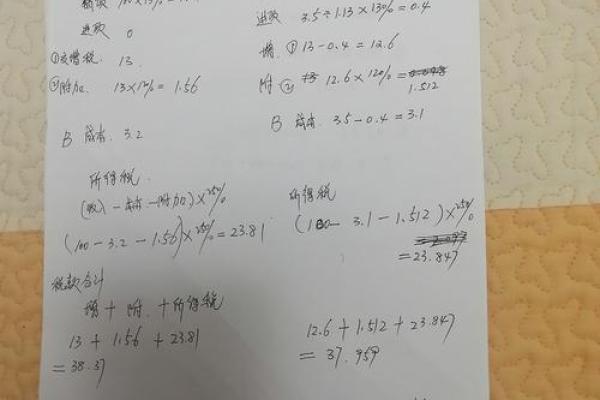 进项 0
①交增税. 13.
②附加. 13×12%= 1.56
B 成本. 3.2
所得税.
(收入 - 成本 - 附加)×25%
(100 - 3.2 - 1.56)×25% = 23.81
税款合计
增 + 附. + 所得税
13 + 1.56 + 23.81
= 38.37
进项 3.5÷1.13×13% = 0.4
增. ① 13-0.4 = 12.6
附 ② 12.6×12% =
1.512
B 成本. 3.5-0.4 = 3.1
所得税
(100 - 3.1 - 1.512)×25%
= 23.847
12.6 + 1.512 + 23.847
= 37.959